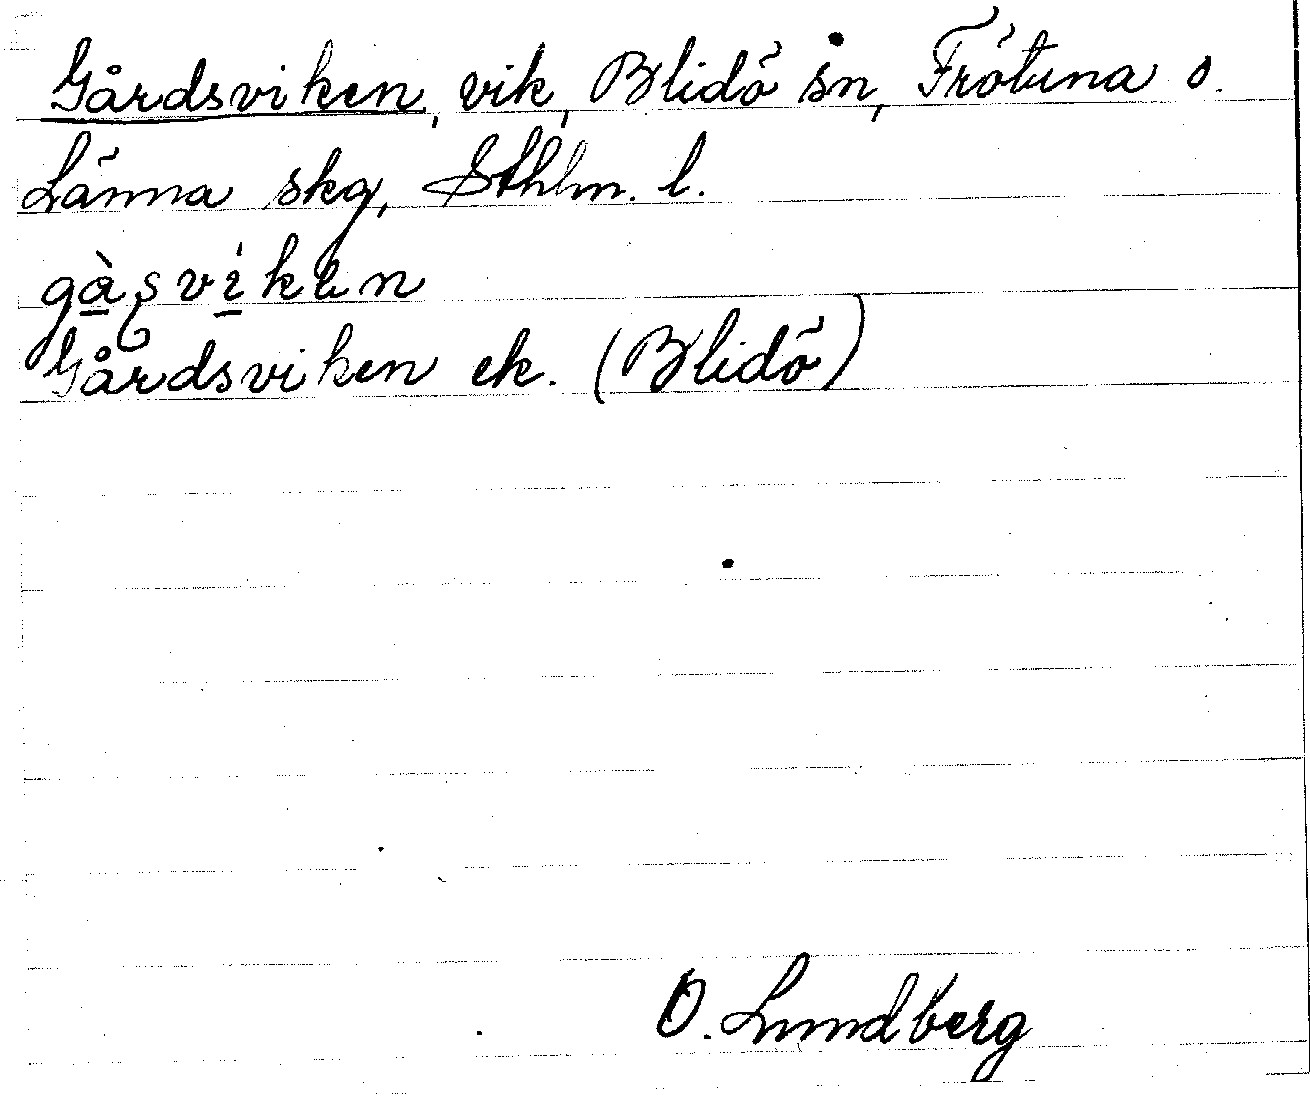 Gårdsviken, vik, Blidö sn, Frötuna o.
Länna skg, Sthlm. l.
gàşvíken
Gårdsviken ek. (Blidö)
O. Lundberg